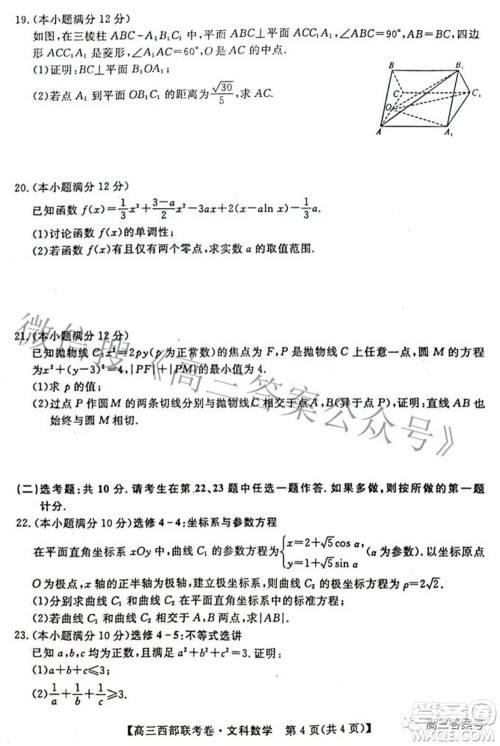 19.(本小题满分12分)
如图,在三棱柱ABC-A₁B₁C₁中,平面ABC⊥平面ACC₁A₁,∠ABC=90°,四边
形ACC₁A₁是菱形,∠A₁AC=60°,O是AC的中点.
(1)证明:BC⊥平面B₁OA₁;
(2)若点A₁到平面OB₁C₁的距离为√30/5,求AC.
B B₁
C C₁
O
A A₁
20.(本小题满分12分)
已知函数f(x)=1/3x³+(3-a)/2x²-3ax+2(x-aln x)-1/3a.
(1)讨论函数f(x)的单调性;
(2)若函数f(x)有且仅有两个零点,求实数a的取值范围.
21.(本小题满分12分)
已知抛物线C:x²=2py(p为常数)的焦点为F,P是抛物线C上任意一点,圆M的方程
为x²+(y-3)²=4,|PF|+|PM|的最小值为4.
(1)求p的值;
(2)过点P作圆M的两条切线分别与抛物线C相交于点A,B(异于点P),证明:直线AB也
始终与圆M相切.
微信搜《高三答案公众号》
(二)选考题:共10分.请考生在第22、23题中任选一题作答.如果多做,则按所做的第一题
计分.
22.(本小题满分10分)选修4-4:坐标系与参数方程
在平面直角坐标系xOy中,曲线C₁的参数方程为{x=2+√5cos α, y=1+√5sin α
O为极点,x轴的正半轴为极轴,建立极坐标系,则曲线C₂的极坐标方程为ρ=2√2.
(1)分别求出曲线C₁和曲线C₂在平面直角坐标系中的标准方程;
(2)若曲线C₁和曲线C₂相交于A,B两点,求|AB|.
23.(本小题满分10分)选修4-5:不等式选讲
已知a,b,c均为正数,且满足a²+b²+c²=3.
(1)证明:a+b+c≤3;
【高三西部联考卷·文科数学 第4页(共4页)】
高三答案号